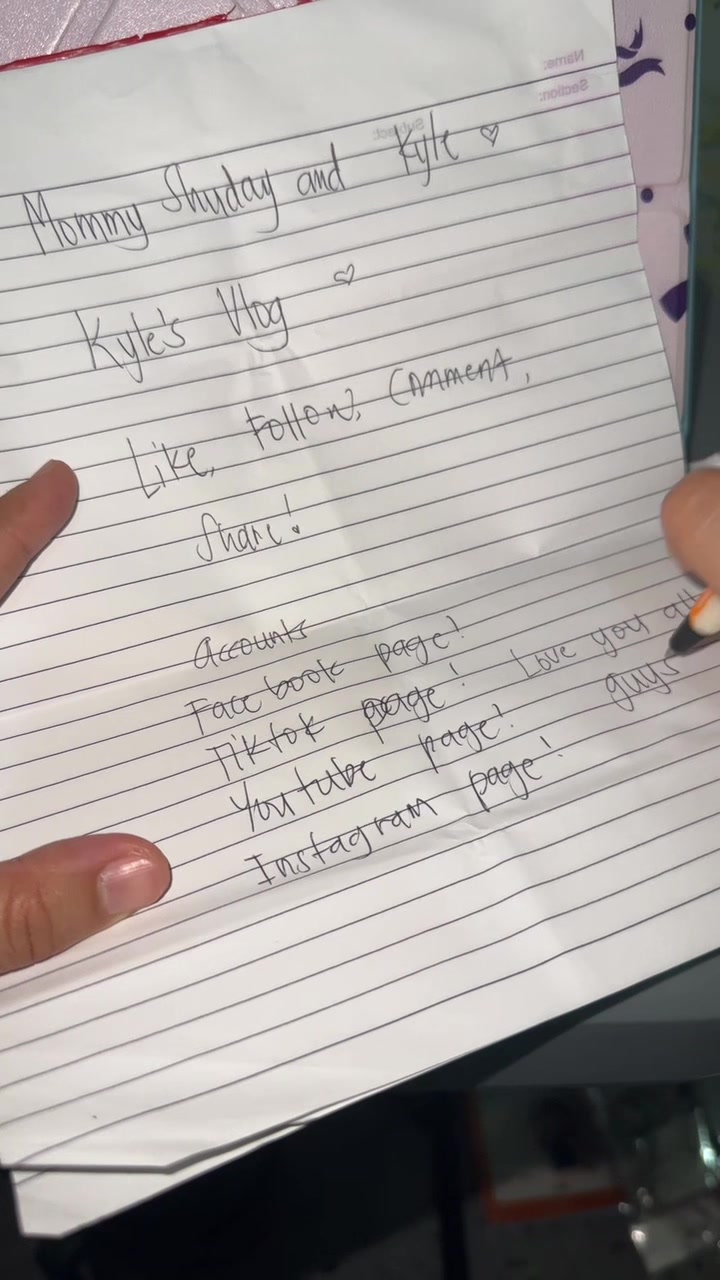 Name:
Section:
Subject:
Mommy Shuday and Kyle ♡
Kyle's Vlog ♡
Like, Follow, Comment,
Share!
Accounts
Facebook page!
Tiktok page! Love you all
Youtube page! guys
Instagram page!